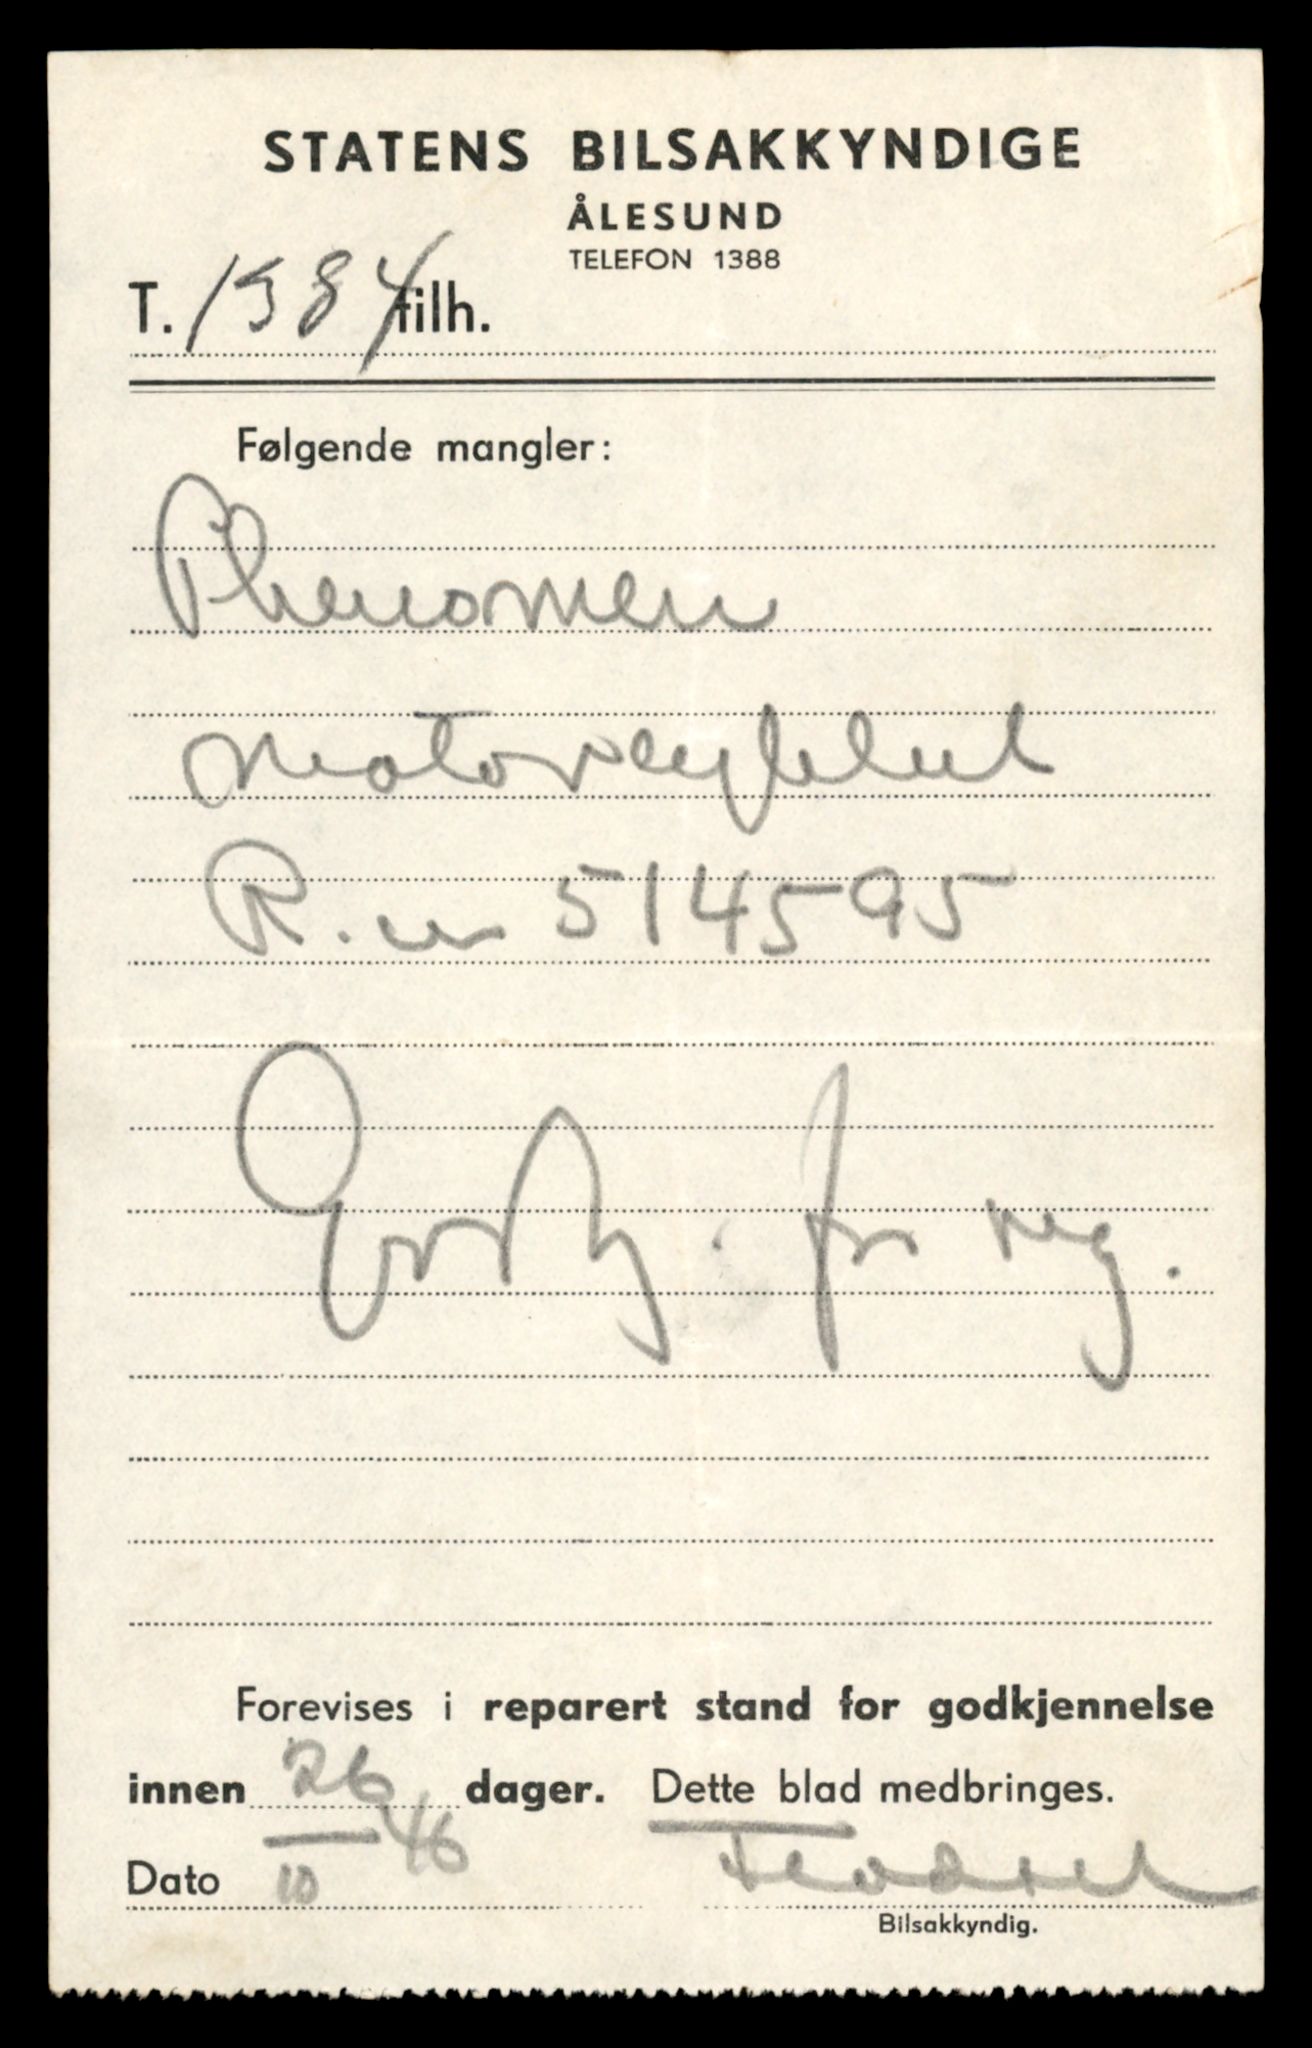 STATENS BILSAKKYNDIGE
ÅLESUND
TELEFON 1388
T. 1384 tilh.
Følgende mangler:
Phenomen
R.nr 514595
for reg.
Forevises i reparert stand for godkjennelse
innen 26 dager. Dette blad medbringes.
Dato 10 46
Bilsakkyndig.